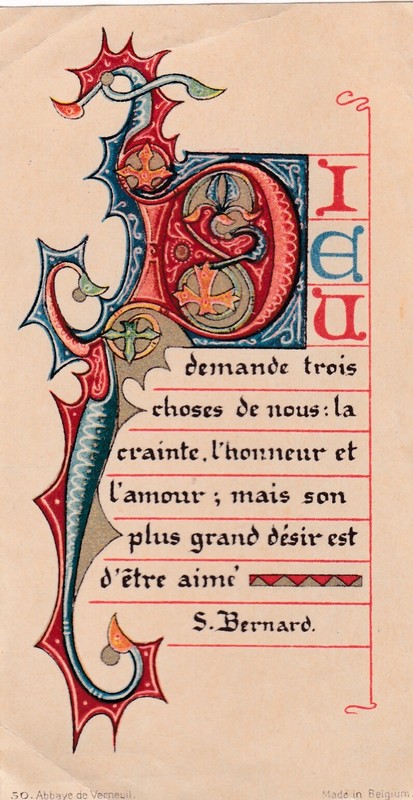 DIEU
demande trois
choses de nous: la
crainte, l'honneur et
l'amour ; mais son
plus grand désir est
d'être aimé
S. Bernard.
50. Abbaye de Verneuil.
Made in Belgium